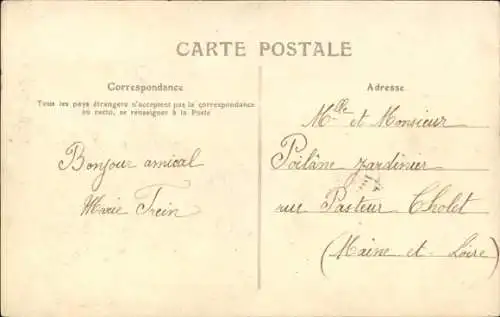 CARTE POSTALE
Correspondance
Tous les pays étrangers n'acceptent pas la correspondance
au recto, se renseigner à la Poste
Bonjour amical
Marie Trein
Adresse
Mlle et Monsieur
Poilâne jardinier
rue Pasteur Cholet
(Maine et Loire)